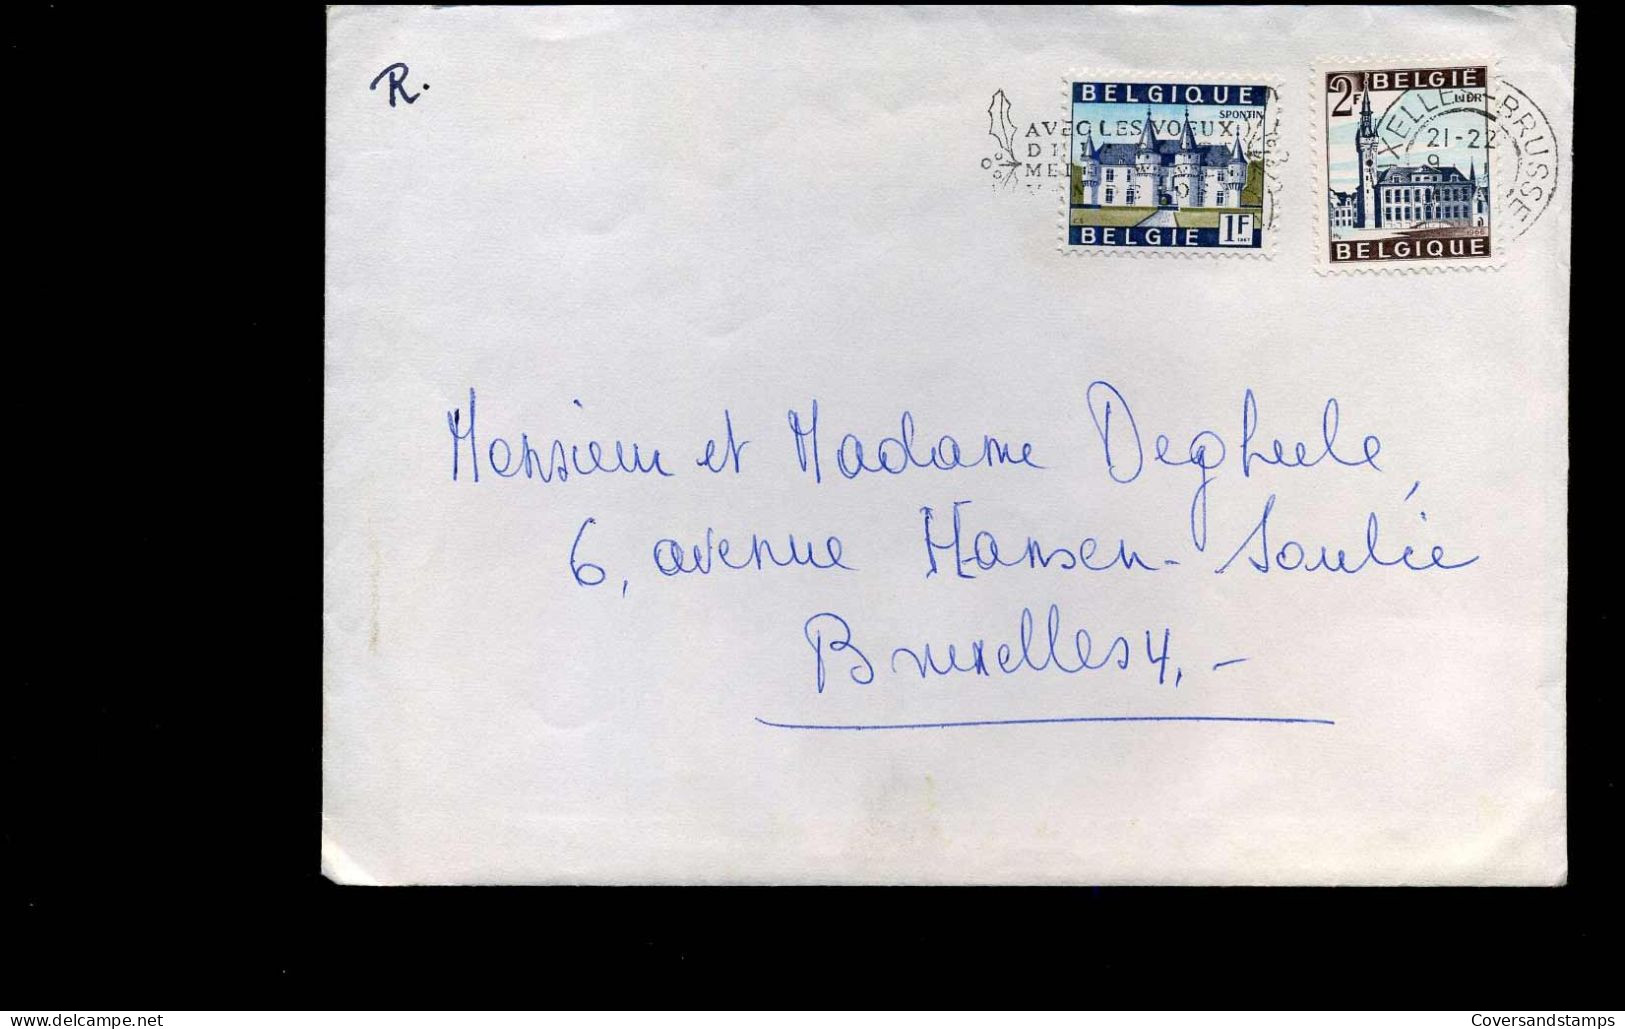 R.
BELGIQUE
SPONTIN
BELGIË 1F
1967
2F BELGIË
LIER
1966
BELGIQUE
AVEC LES VOEUX
21-22
9
Monsieur et Madame Degheele,
6, avenue Hansen-Soulie
Bruxelles 4,-
delcampe.net
Coversandstamps